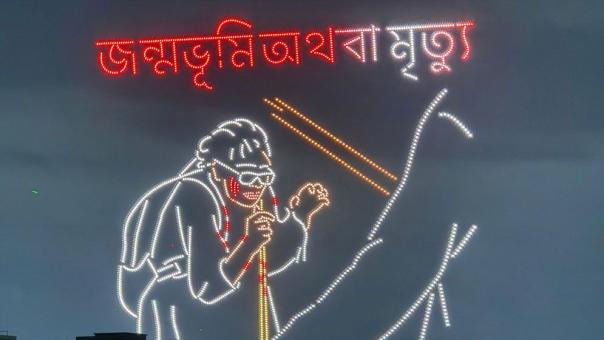 জন্মভূমি অথবা মৃত্যু